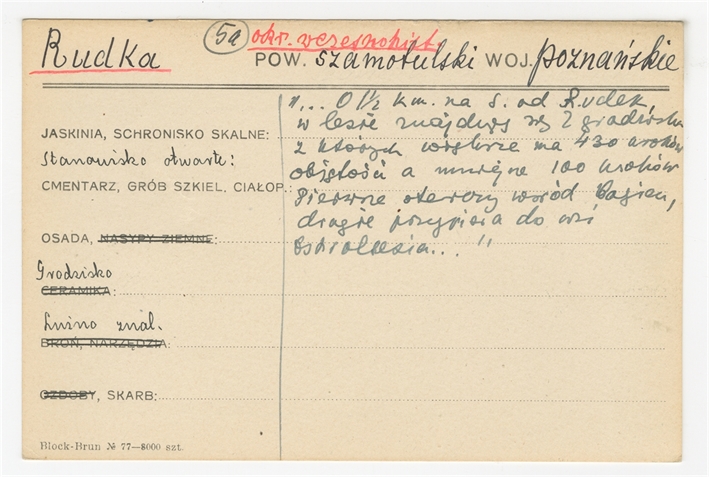 Rudka
5a
okr. wczesnohist.
POW. szamotulski WOJ. poznańskie
JASKINIA, SCHRONISKO SKALNE:
Stanowisko otwarte:
CMENTARZ, GRÓB SZKIEL, CIAŁOP.:
OSADA, NASYPY ZIEMNE:
Grodzisko
CERAMIKA:
Luźno znal.
BROŃ, NARZĘDZIA:
OZDOBY, SKARB:
Block-Brun № 77—8000 szt.
"... O 1½ km. na S. od Rudek,
w lesie znajdują się 2 grodziska
z których większe ma 430 kroków
objętości a mniejsze 100 kroków
Pierwsze otoczy wśród bagien,
drugie przypiera do wsi
Ostrolesia... "